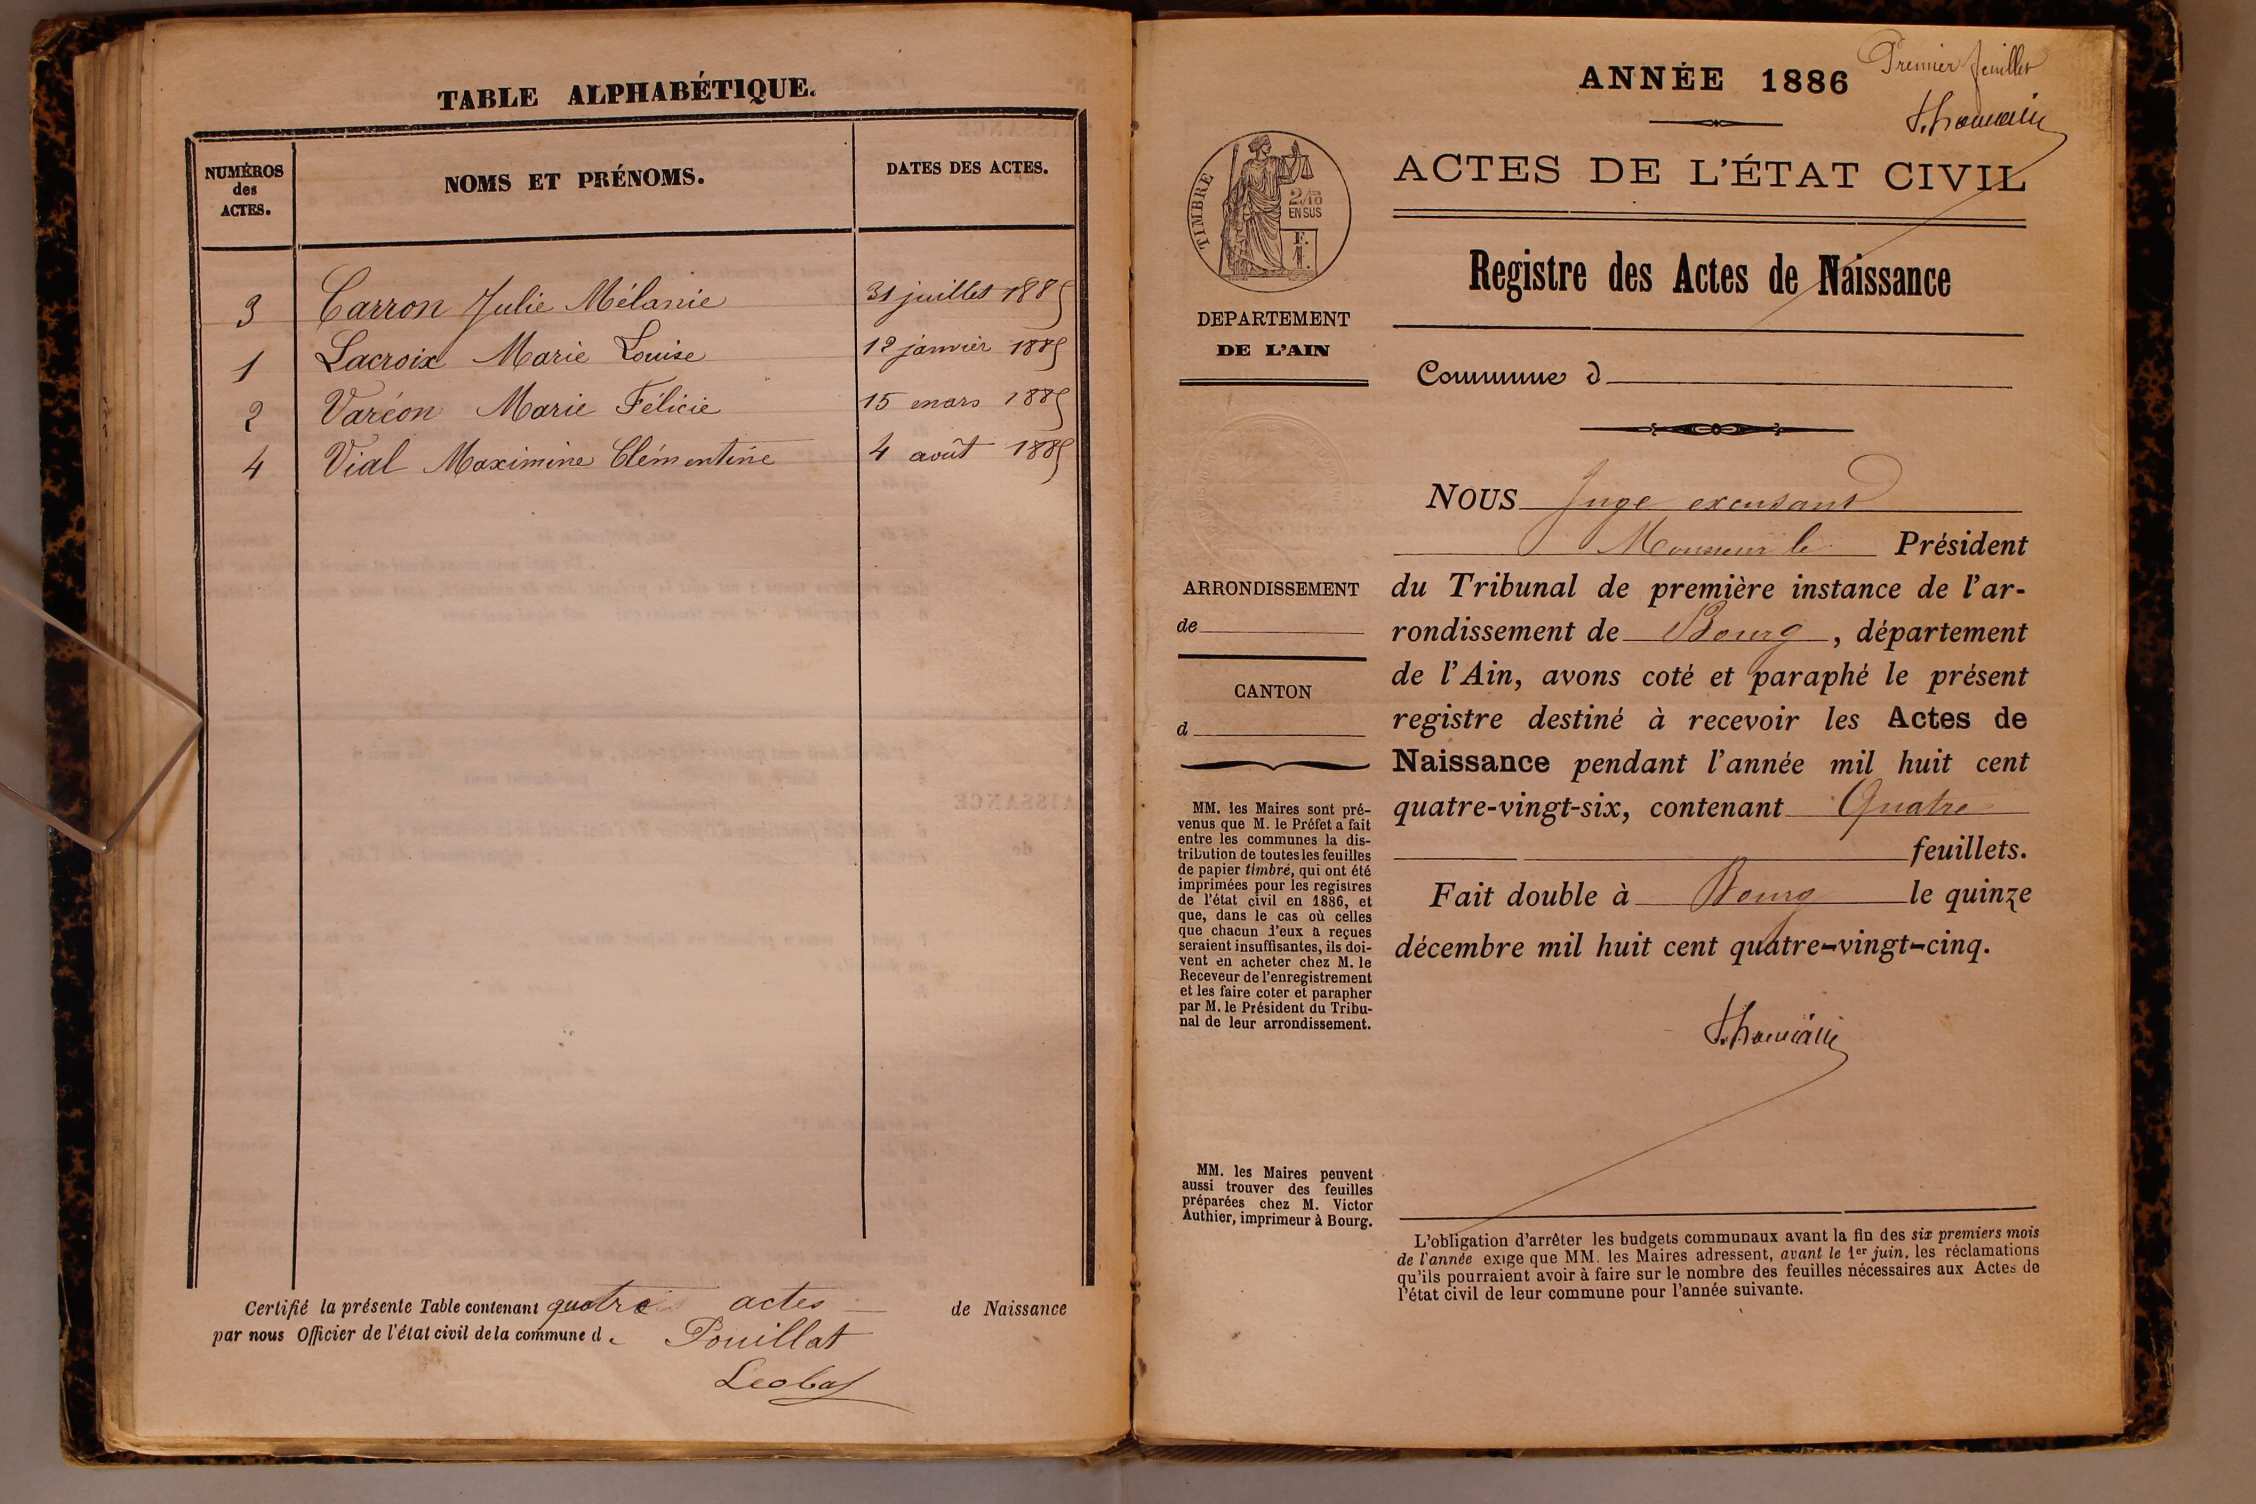 TABLE ALPHABÉTIQUE.
NUMÉROS
des
ACTES.
NOMS ET PRÉNOMS.
DATES DES ACTES.
3 Carron Julie Mélanie 31 juillet 1885
1 Lacroix Marie Louise 12 janvier 1885
2 Varéon Marie Félicie 15 mars 1885
4 Vial Maximine Clémentine 4 août 1885
Certifié la présente Table contenant quatre actes de Naissance
par nous Officier de l'état civil de la commune de Pouillat
Premier feuillet
ANNÉE 1886
ACTES DE L'ÉTAT CIVIL
TIMBRE
2/10
EN SUS
F.
1.
Registre des Actes de Naissance
DEPARTEMENT
DE L'AIN
Commune d
NOUS Juge excusant
Monsieur le Président
ARRONDISSEMENT
de
CANTON
d
du Tribunal de première instance de l'ar-
rondissement de Bourg, département
de l'Ain, avons coté et paraphé le présent
registre destiné à recevoir les Actes de
Naissance pendant l'année mil huit cent
quatre-vingt-six, contenant Quatre
feuillets.
Fait double à Bourg le quinze
décembre mil huit cent quatre-vingt-cinq.
MM. les Maires sont pré-
venus que M. le Préfet a fait
entre les communes la dis-
tribution de toutes les feuilles
de papier timbré, qui ont été
imprimées pour les registres
de l'état civil en 1886, et
que, dans le cas où celles
que chacun d'eux a reçues
seraient insuffisantes, ils doi-
vent en acheter chez M. le
Receveur de l'enregistrement
et les faire coter et parapher
par M. le Président du Tribu-
nal de leur arrondissement.
MM. les Maires peuvent
aussi trouver des feuilles
préparées chez M. Victor
Authier, imprimeur à Bourg.
L'obligation d'arrêter les budgets communaux avant la fin des six premiers mois
de l'année exige que MM. les Maires adressent, avant le 1er juin, les réclamations
qu'ils pourraient avoir à faire sur le nombre des feuilles nécessaires aux Actes de
l'état civil de leur commune pour l'année suivante.